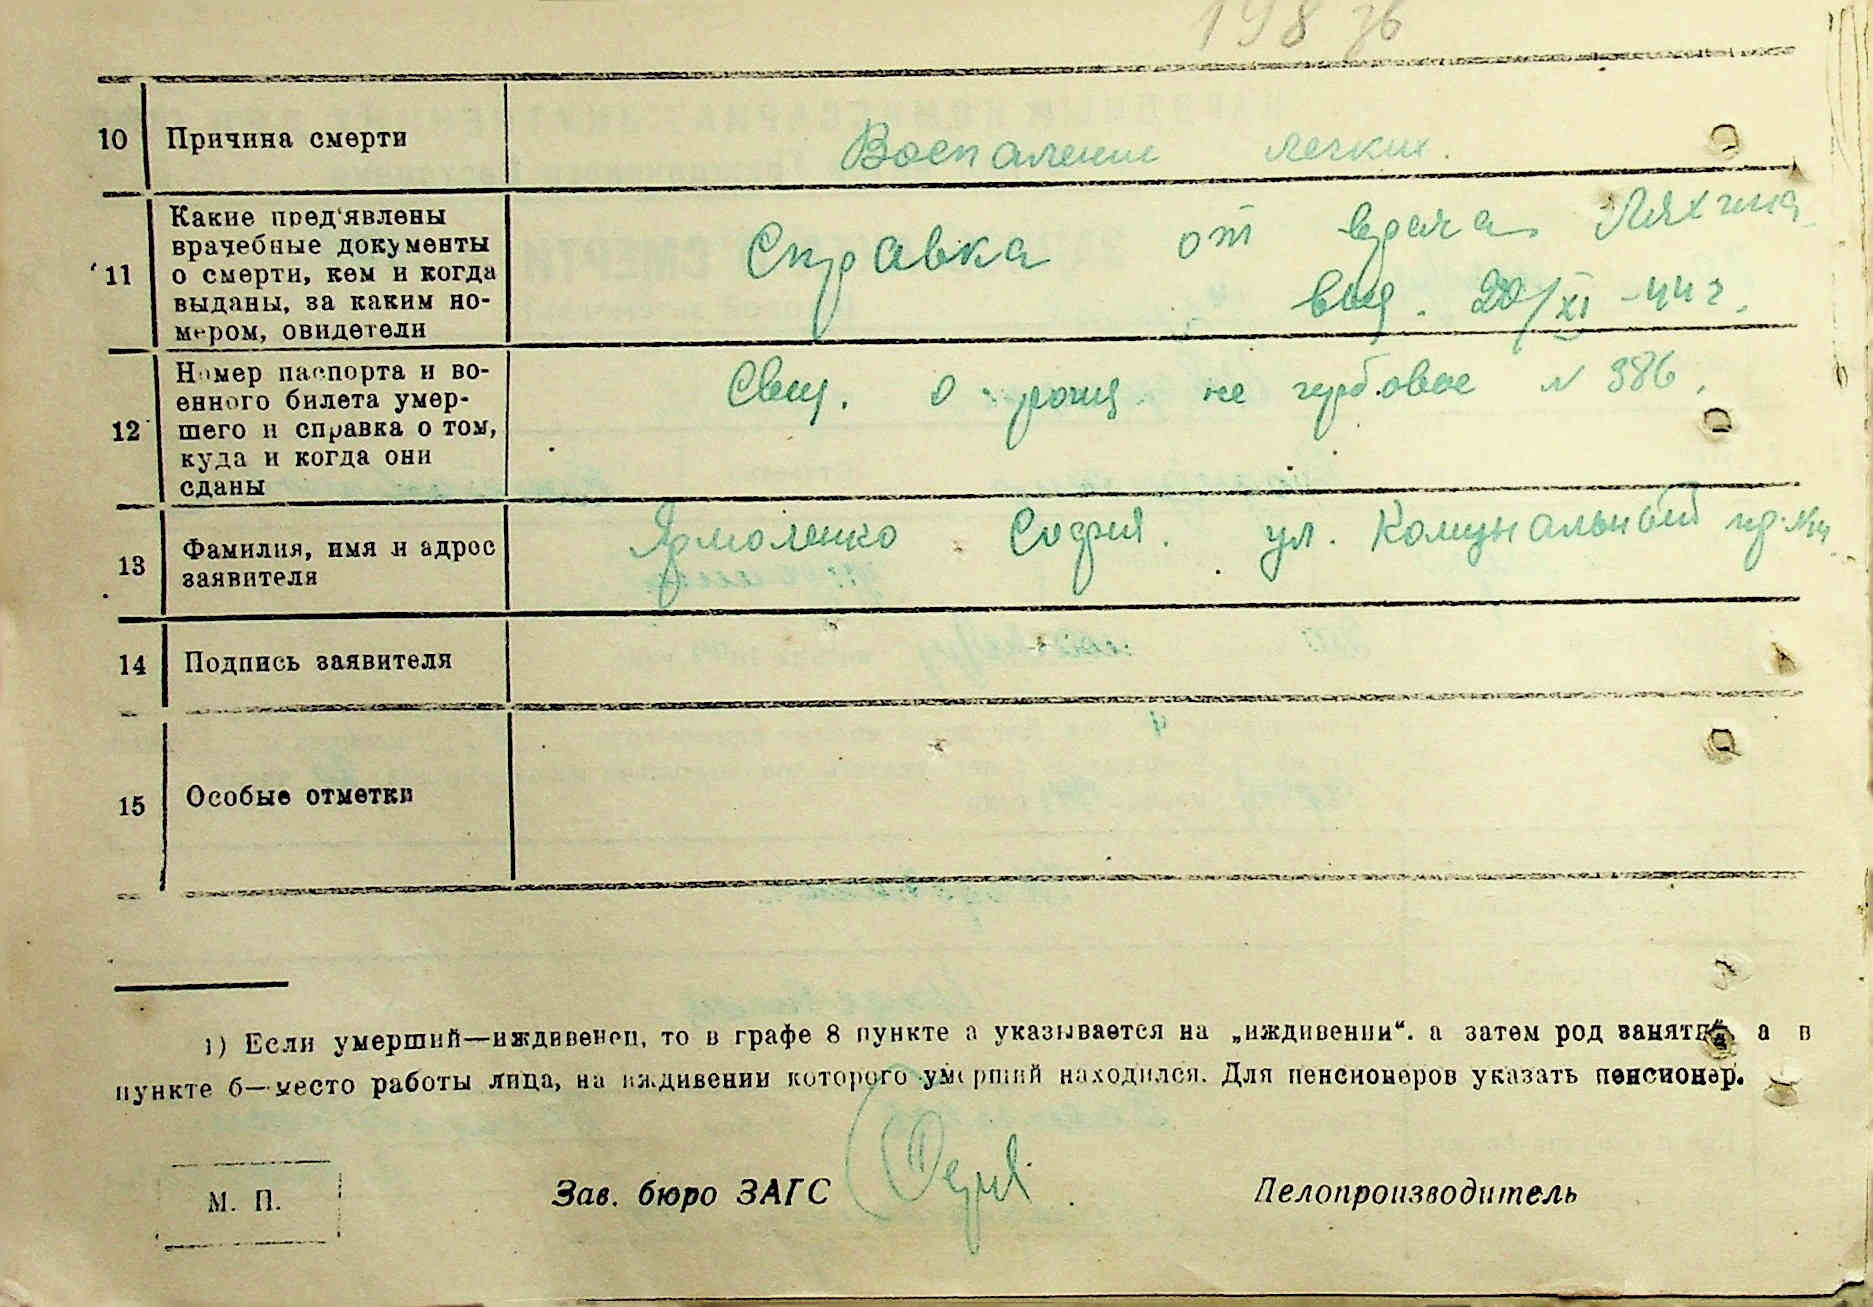 198 зв
10 Причина смерти Воспаление легких.
11 Какие пред'явлены
врачебные документы
о смерти, кем и когда
выданы, за каким но-
мером, свидетели
Справка от врача Ляхина
выд. 20/XI - 44 г.
12 Номер паспорта и во-
енного билета умер-
шего и справка о том,
куда и когда они
сданы
Свид. о рожд. не гербовое N 386.
13 Фамилия, имя и адрес
заявителя
Ярмоленко София. ул. Комунальный
14 Подпись заявителя
15 Особые отметки
1) Если умерший—иждивенец, то в графе 8 пункте а указывается на „иждивении“. а затем род занятий, а в
пункте б—место работы лица, на иждивении которого умерший находился. Для пенсионеров указать пенсионер.
М. П. Зав. бюро ЗАГС Делопроизводитель